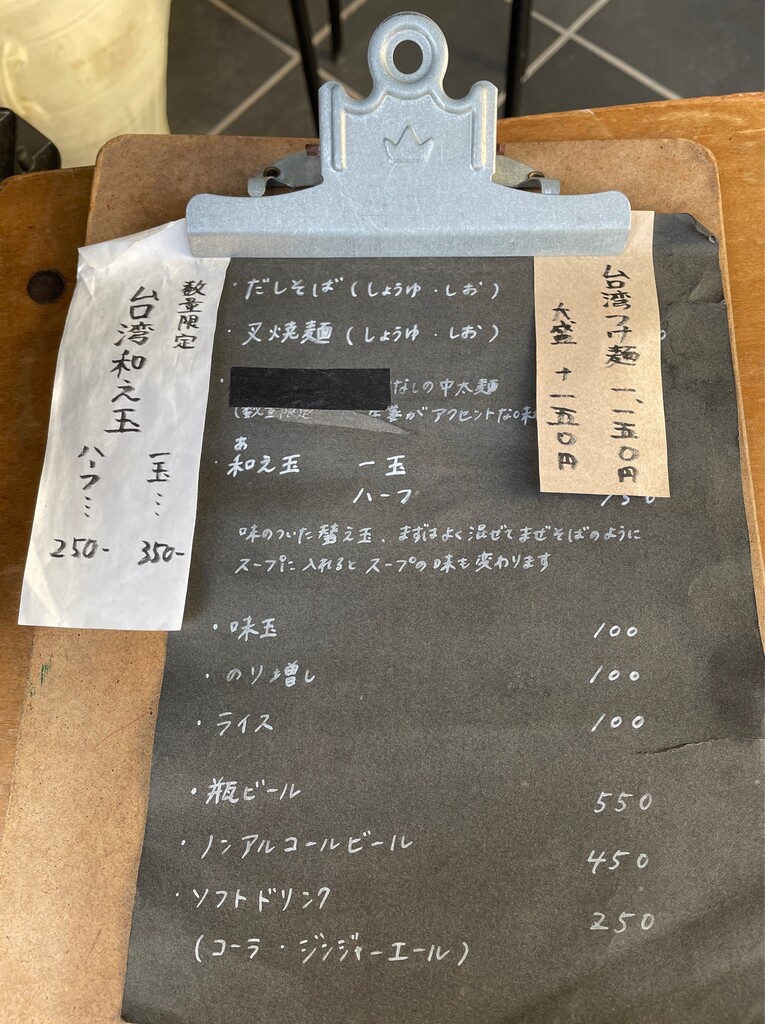 数量限定
台湾和え玉
一玉… 350-
ハーフ… 250-
・だしそば(しょうゆ・しお)
・叉焼麺(しょうゆ・しお)
なしの中太麺
(数量限定 がアクセントな味
あ
・和え玉 一玉
ハーフ 150
味のついた替え玉、まずはよく混ぜてまぜそばのように
スープに入れるとスープの味も変わります
・味玉 100
・のり増し 100
・ライス 100
・瓶ビール 550
・ノンアルコールビール 450
・ソフトドリンク 250
(コーラ・ジンジャーエール)
台湾つけ麺 一、一五〇円
大盛 +一五〇円